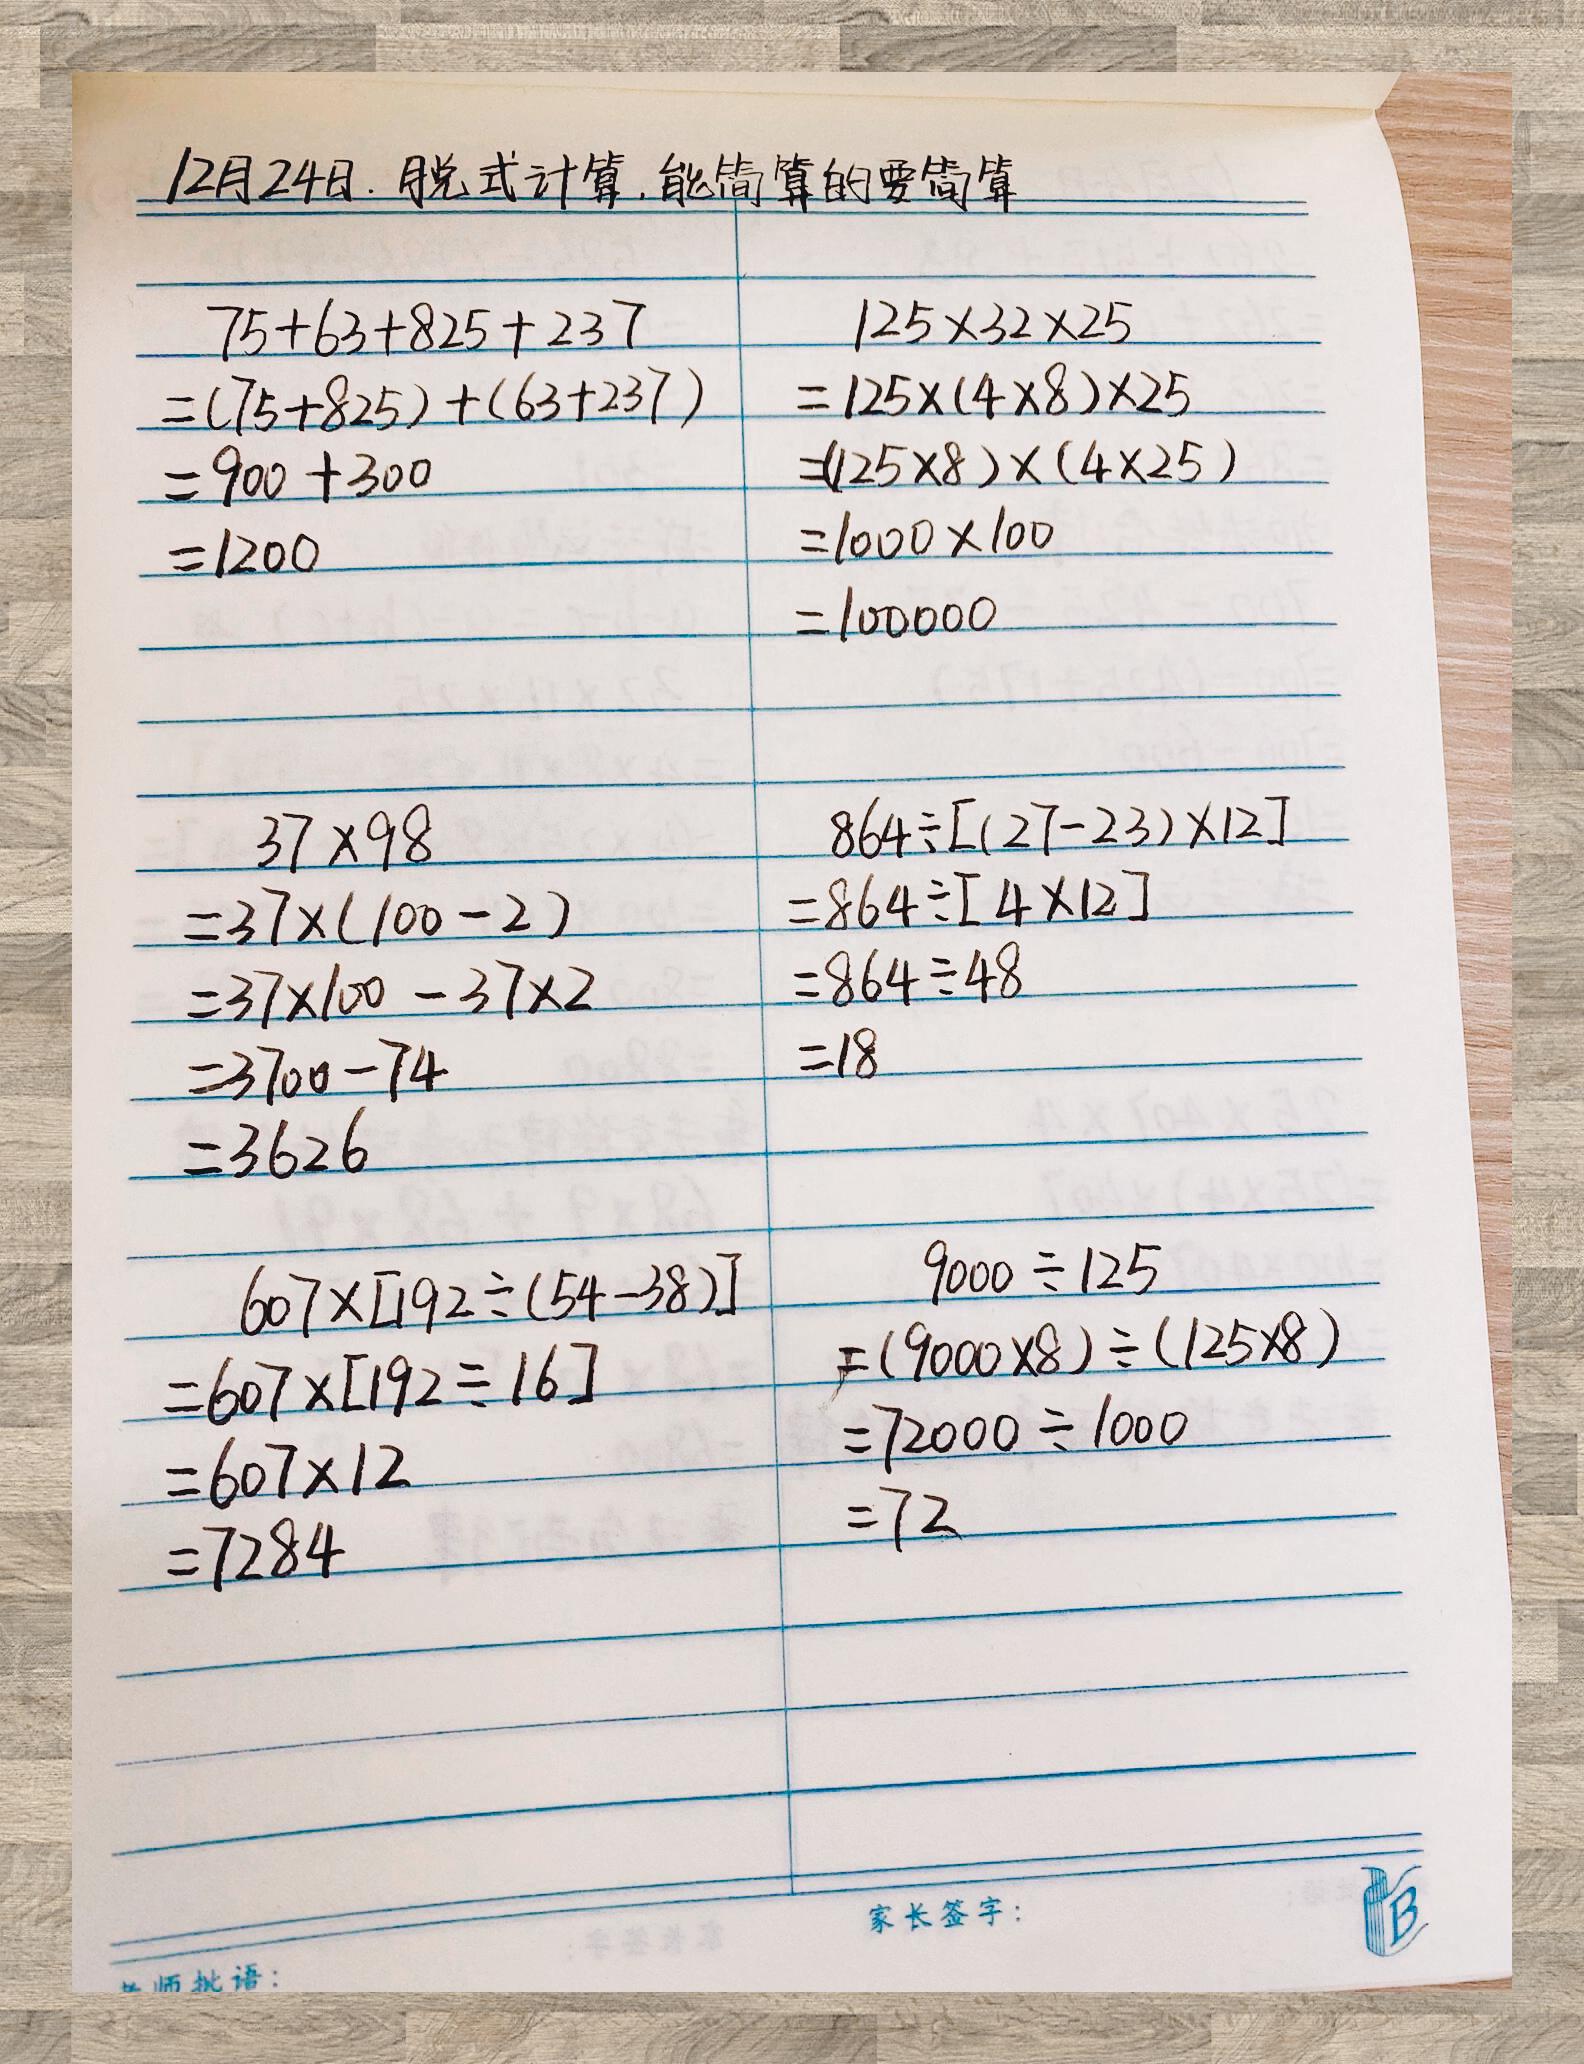 12月24日.脱式计算.能简算的要简算
75+63+825+237
=(75+825)+(63+237)
=900+300
=1200
125×32×25
=125×(4×8)×25
=(125×8)×(4×25)
=1000×100
=100000
37×98
=37×(100-2)
=37×100-37×2
=3700-74
=3626
864÷[(27-23)×12]
=864÷[4×12]
=864÷48
=18
607×[192÷(54-38)]
=607×[192÷16]
=607×12
=7284
9000÷125
=(9000×8)÷(125×8)
=72000÷1000
=72
家长签字:
老师批语:
B